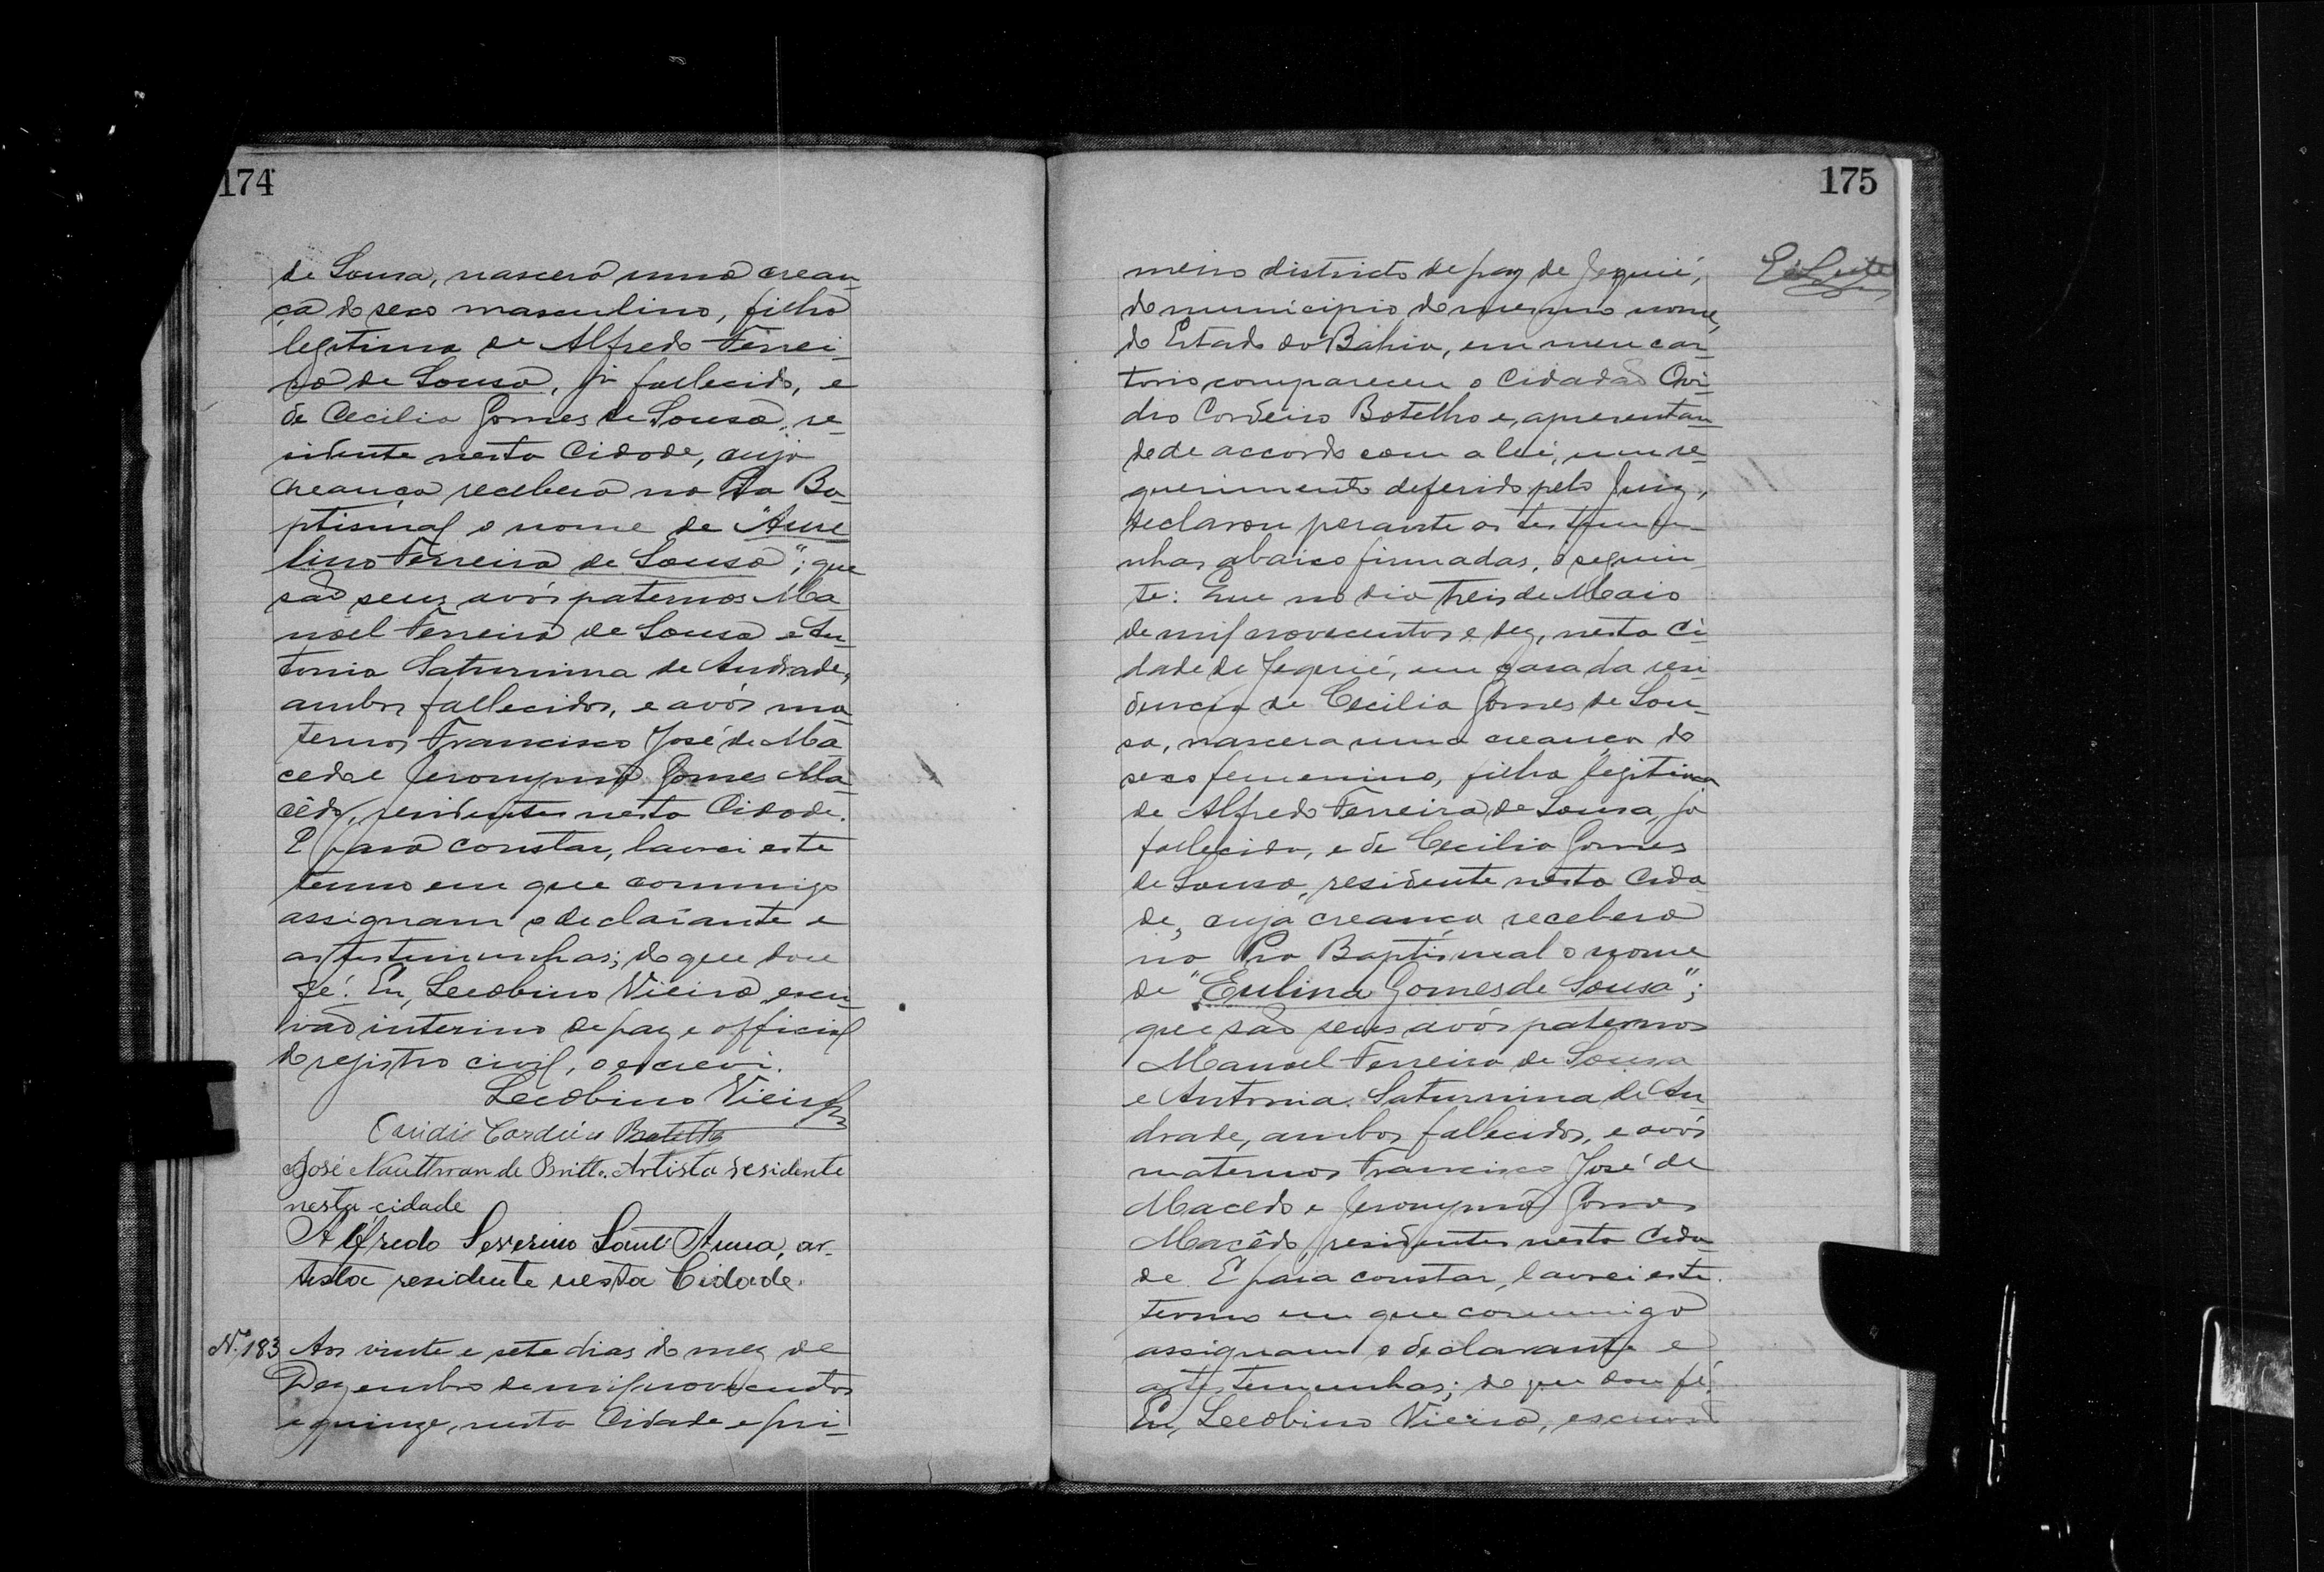 174
de Sousa, nascera uma crean-
ça do sexo masculino, filho
legitimo de Alfredo Ferrei-
ra de Sousa, já fallecido, e
de Cecilia Gomes de Sousa, re-
sidente nesta Cidade, cuja
creança receberá na Pia Ba-
ptismal o nome de "Aure
lino Ferreira de Sousa"; que
são seus avós paternos Ma-
noel Ferreira de Sousa e An-
tonia Saturnina de Andrade,
ambos fallecidos, e avós ma-
ternos Francisco José de Ma
cedo e Jeronyma Gomes Ma-
cêdo, residentes nesta Cidade.
E para constar, lavrei este
termo em que commigo
assignam o declarante e
as testimunhas; do que dou
fé. Eu, Leobino Vieira, escri
vão interino de paz e official
do registro civil, o escrevi.
Leobino Vieira
Ovidio Cordeiro Botelho
José de Britto. Artista residente
nesta cidade
Alfredo Severino Sant'Anna, ar-
tista residente nesta Cidade.
Nº 183 Aos vinte e sete dias do mez de
Dezembro de mil novecentos
e quinze, nesta Cidade e pri-
175
meiro districto de paz de Jequié,
do municipio do mesmo nome,
do Estado da Bahia, em meu car-
torio compareceu o Cidadão Ovi-
dio Cordeiro Botelho e, apresentan-
do de accordo com a lei, um re-
querimento deferido pelo Juiz,
declarou perante as testemu-
nhas abaixo firmadas, o seguin-
te: Que no dia treis de Maio
de mil novecentos e dez, nesta Ci-
dade de Jequié, em casa da resi-
dencia de Cecilia Gomes de Sou-
sa, nascera uma creança do
sexo femenino, filha legitima
de Alfredo Ferreira de Sousa, já
fallecido, e de Cecilia Gomes
de Sousa, residente nesta Cida-
de, cuja creança receberá
na Pia Baptismal o nome
de "Eulina Gomes de Sousa";
que são seus avós paternos
Manoel Ferreira de Sousa
e Antonia Saturnina de An-
drade, ambos fallecidos, e avós
maternos Francisco José de
Macêdo e Jeronyma Gomes
Macêdo, residentes nesta Cida-
de. E para constar, lavrei este
termo em que commigo
assignam o declarante e
as testemunhas; do que dou fé.
Eu, Leobino Vieira, escrivão